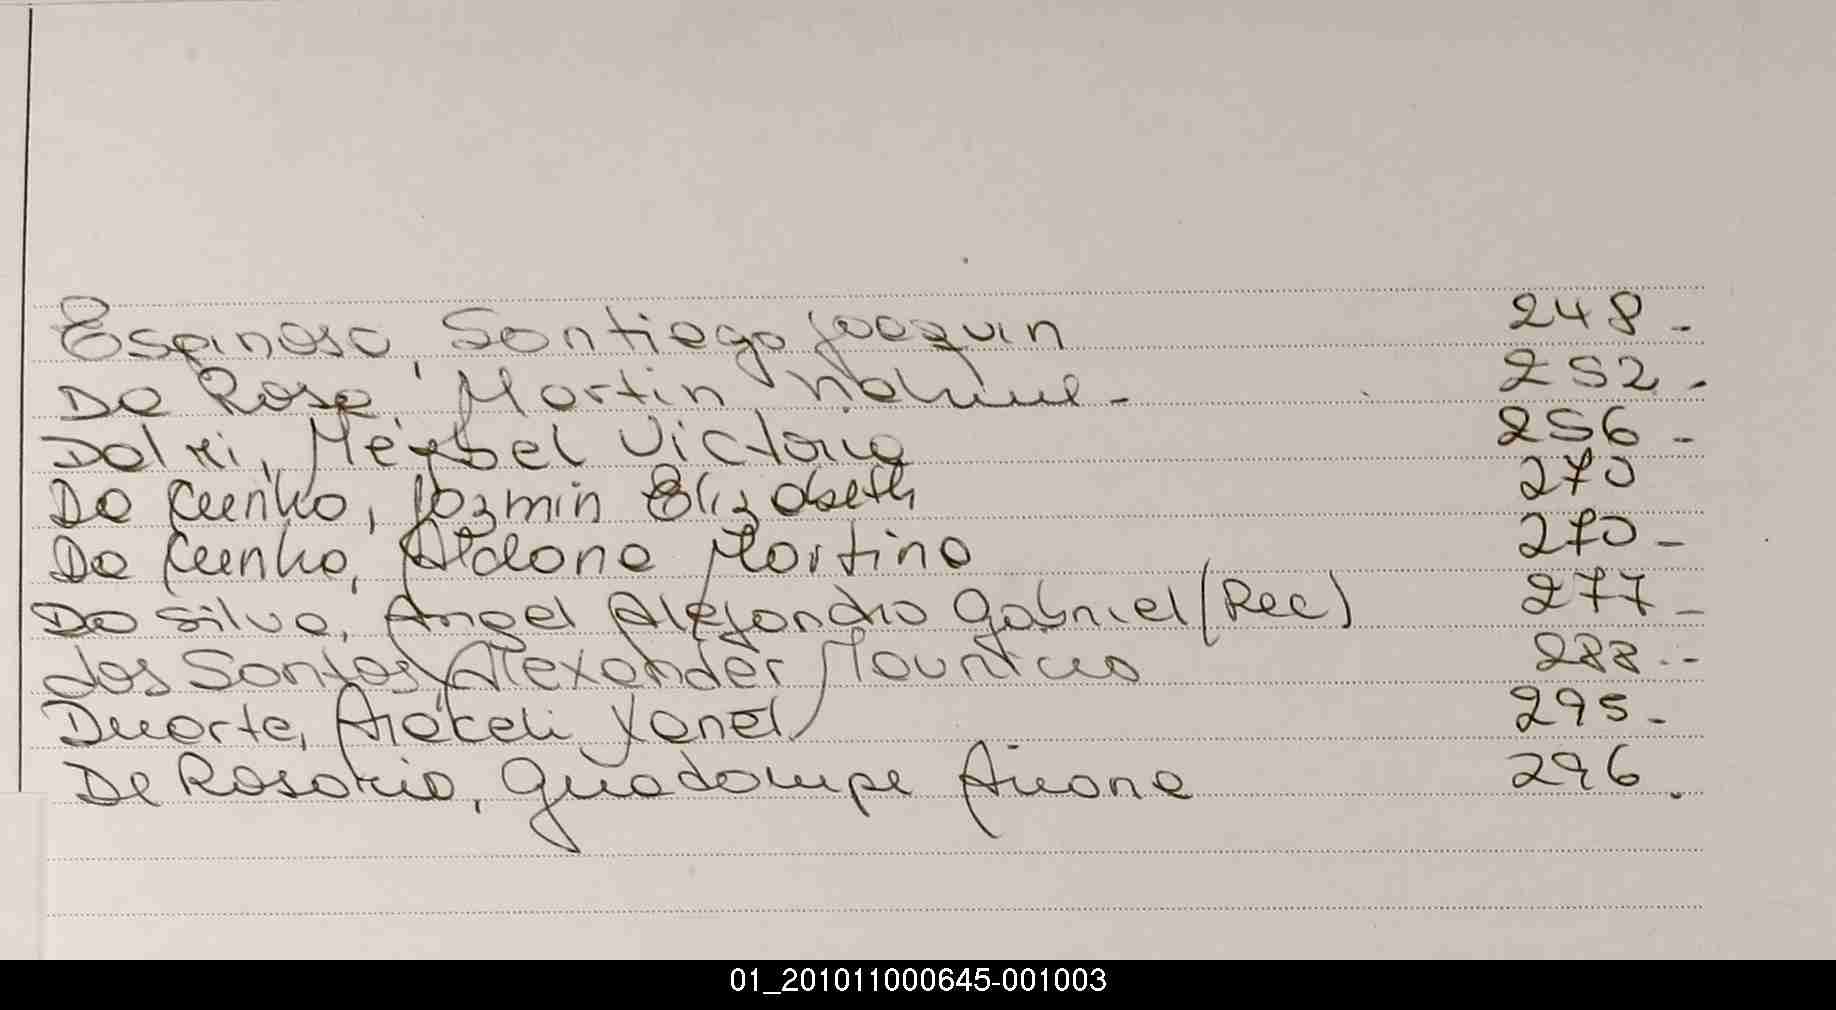 Espinosa, Santiago Joaquin 248 -
Da Rosa, Martin Nahuel - 252 -
Dalxi, Meybel Victoria 256 -
Da Cunha, Jazmin Elizabeth 270
Da Cunha, Aldana Martina 270 -
Da Silva, Angel Alejandro Gabriel (Rec) 277 -
dos Santos, Alexander Mauricio 288 --
Duarte, Araceli Yanel 295 -
De Rosario, Guadalupe Aixana 296 .
01_201011000645-001003